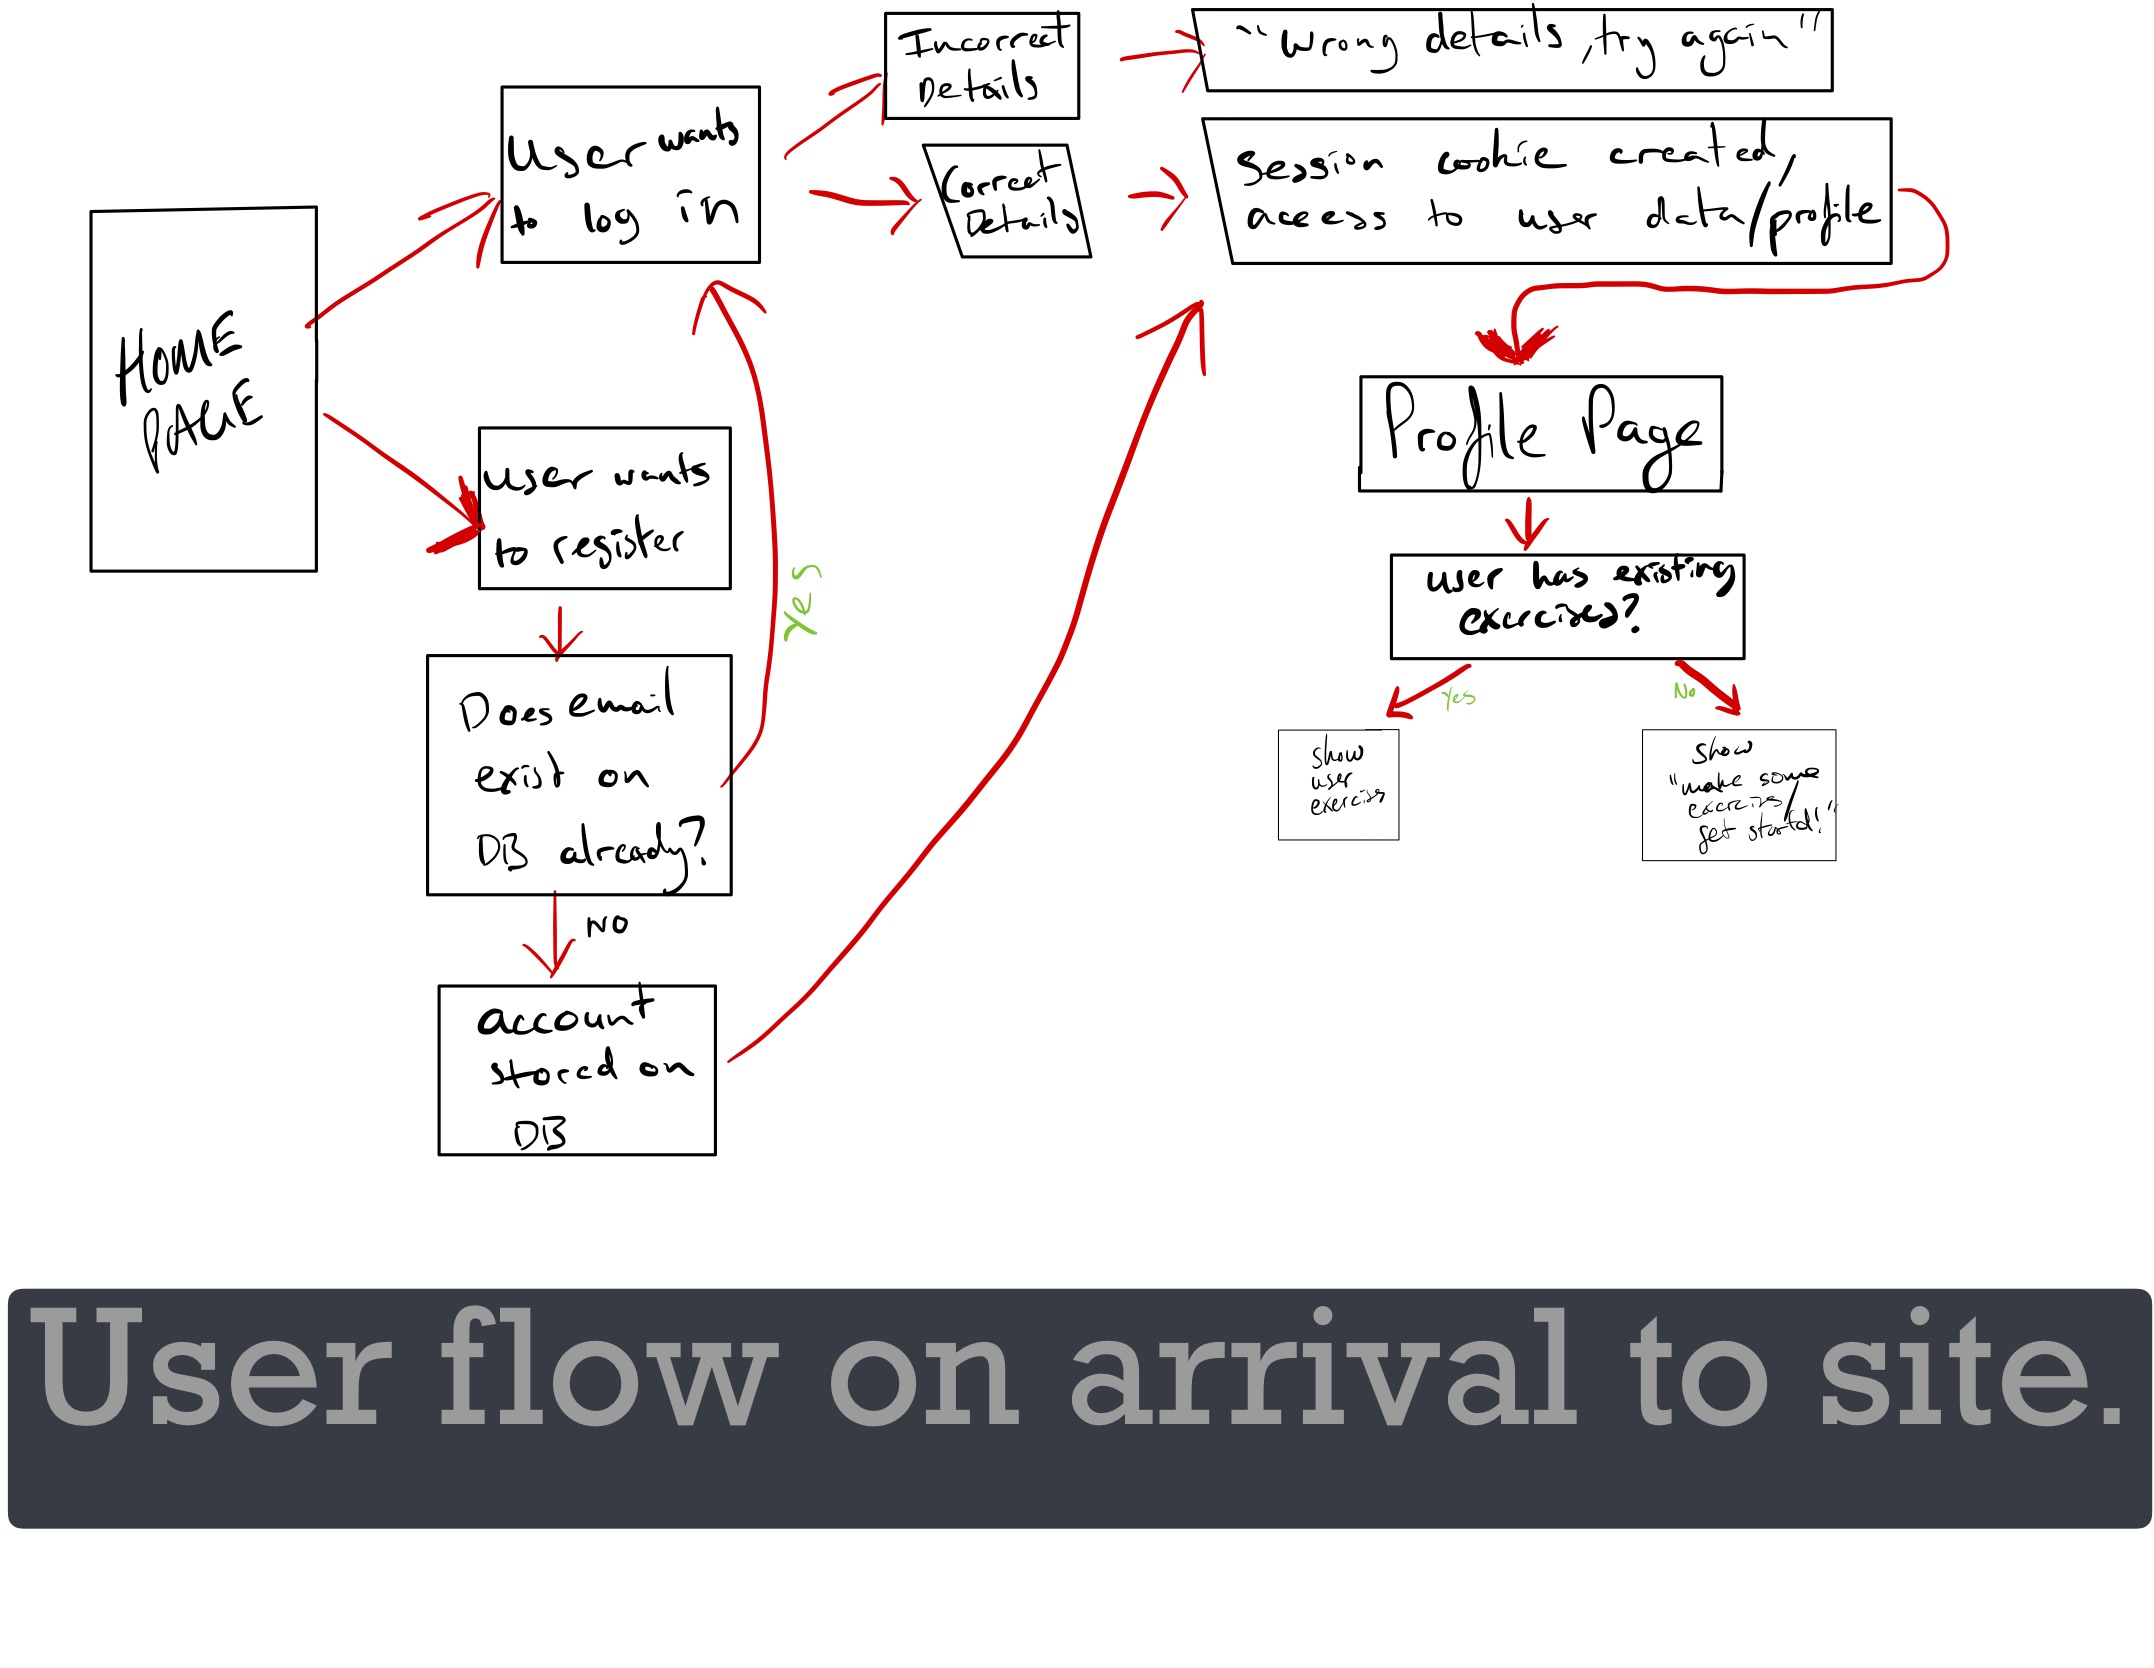 HOME
PAGE
User wants
to log in
Incorrect
Details
"Wrong details, try again"
Correct
Details
Session cookie created,
access to user data/profile
user wants
to register
Does email
exist on
DB already?
Yes
NO
account
stored on
DB
Profile Page
user has existing
exercises?
Yes
No
show
user
exercises
show
"make some
exercises
get started!"
User flow on arrival to site.